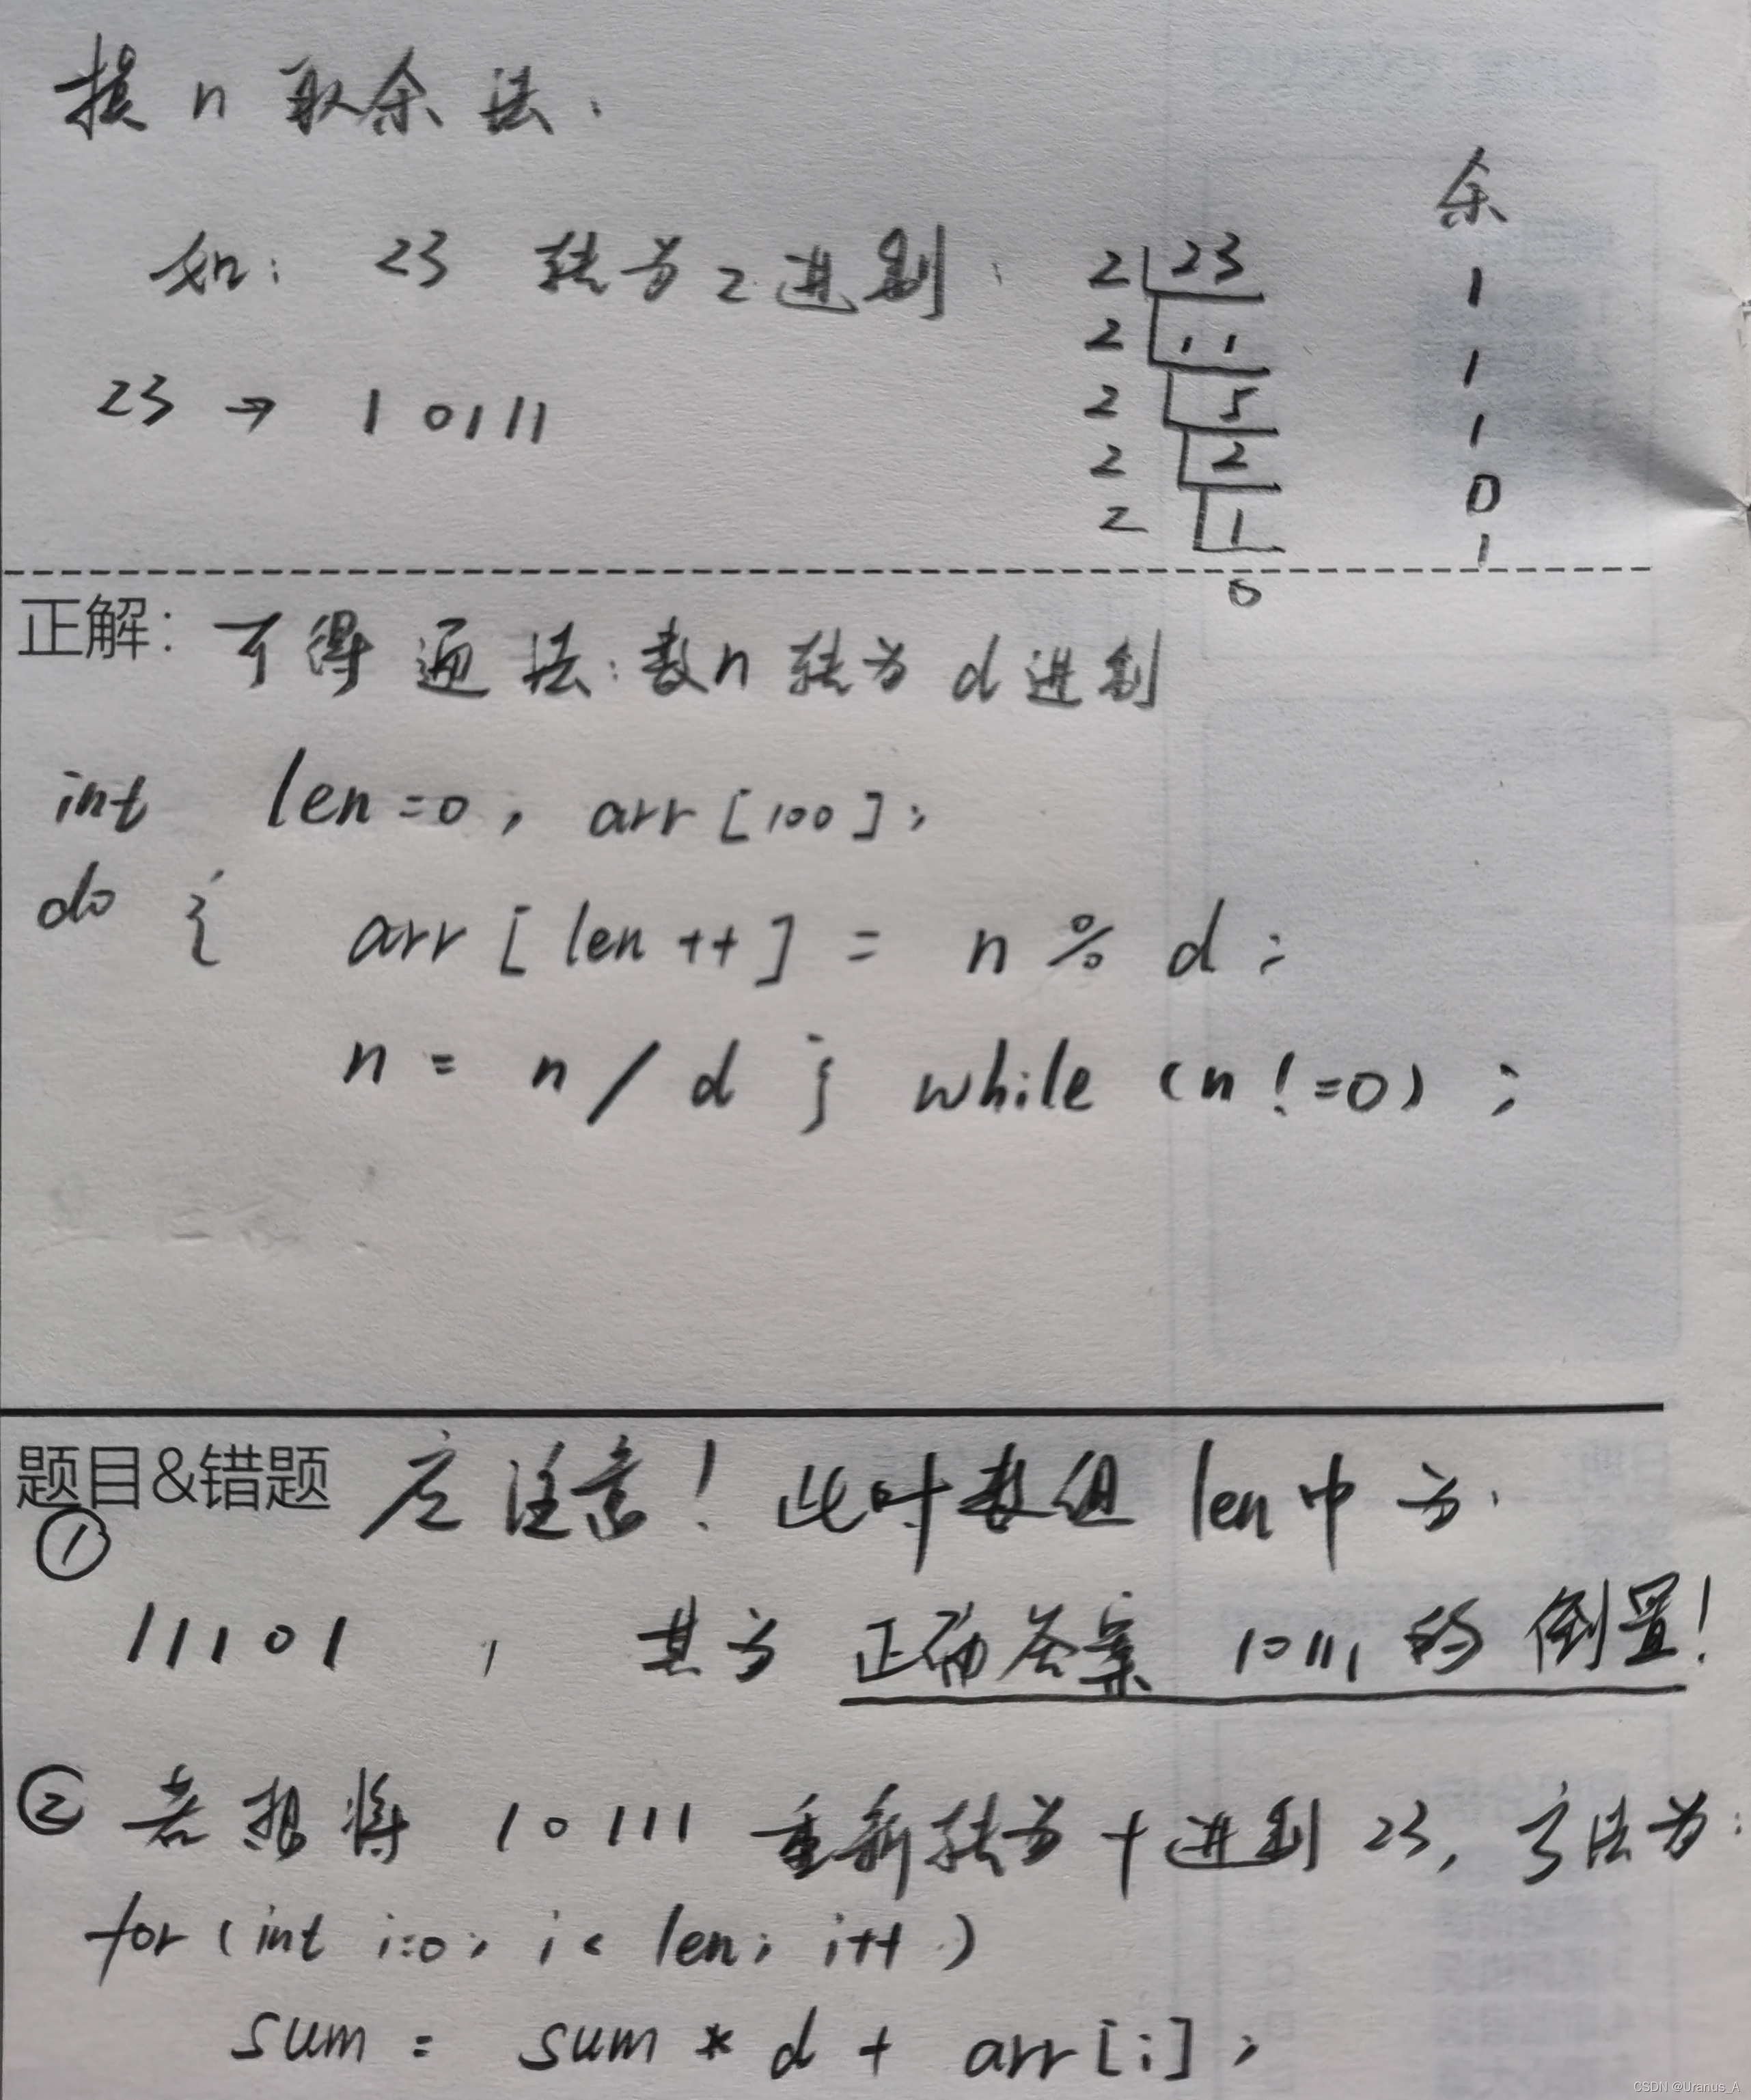 损n取余法:
余
如: 23 转为2进制: 2 23 1
2 11 1
23 → 10111 2 5 1
2 2 0
2 1 1
0
正解: 可得通法:数n转为d进制
int len=0, arr[100];
do { arr[len++] = n % d;
n = n / d } while (n!=0);
题目&错题 应注意!此时数组len中为:
①
11101 , 其为正确答案10111的倒置!
② 若想将10111重新转为十进制23,方法为:
for(int i=0; i< len; i++)
sum = sum * d + arr[i];
CSDN @Uranus_A